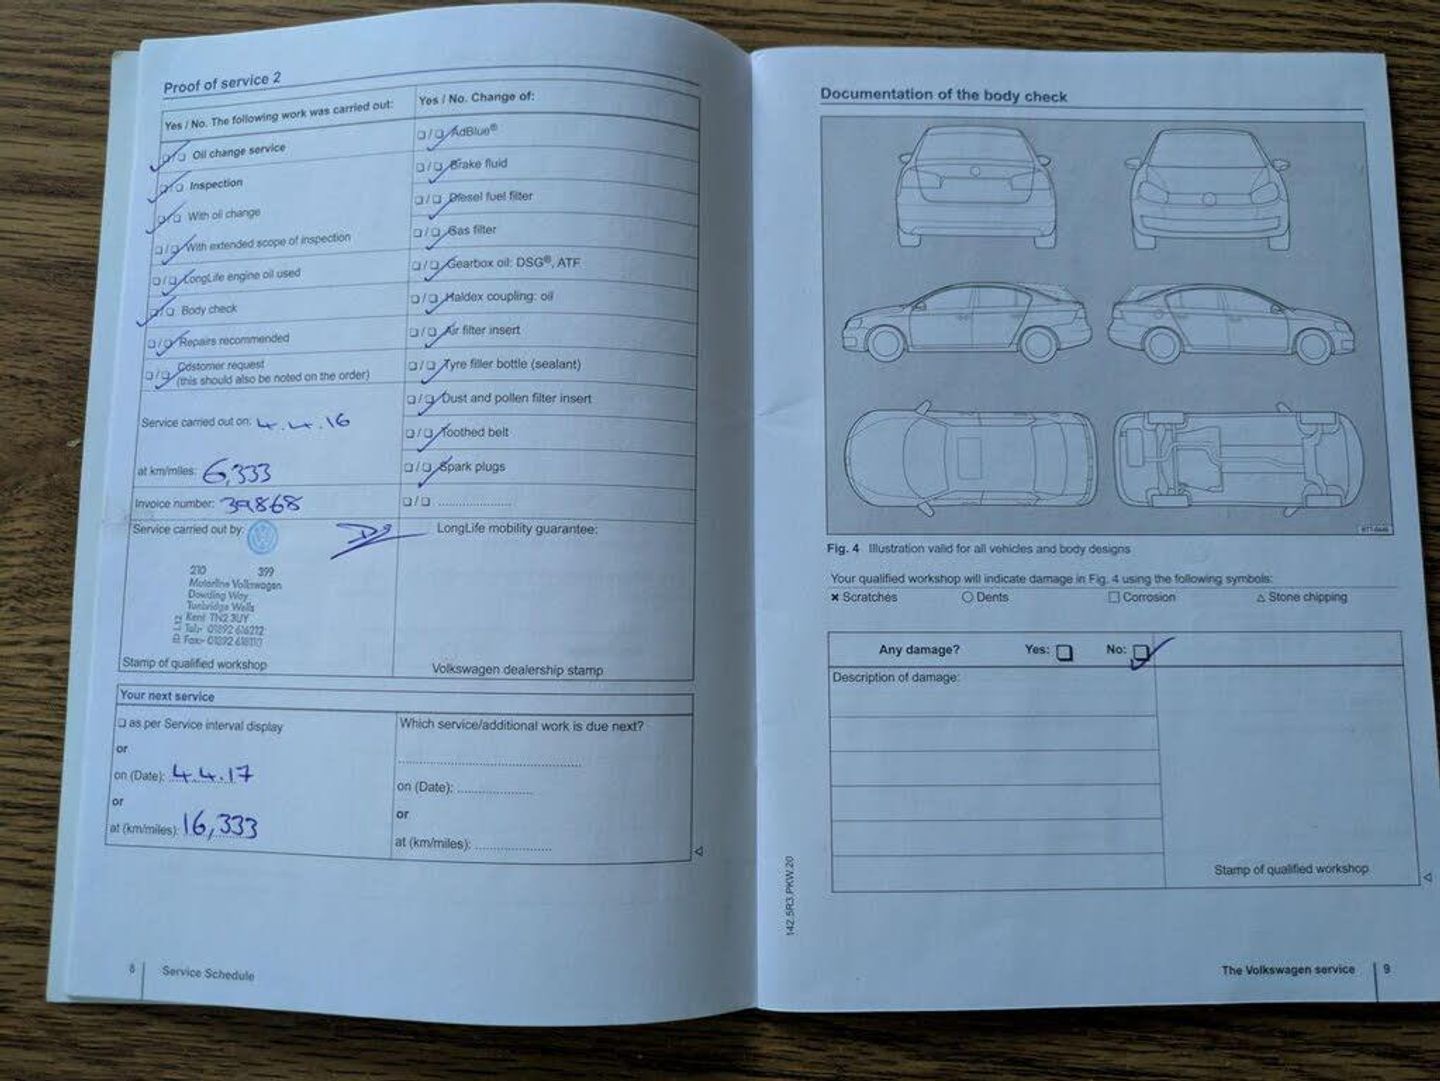 Proof of service 2
Yes / No. The following work was carried out:
Oil change service
Inspection
With oil change
With extended scope of inspection
LongLife engine oil used
Body check
Repairs recommended
Customer request
(this should also be noted on the order)
Service carried out on: 4.4.16
at km/miles: 6,333
Invoice number: 39868
Service carried out by:
210 399
Motorline Volkswagen
Dowding Way
Tunbridge Wells
Kent TN2 3UY
Tel:- 01892 616212
Fax:- 01892 618110
Stamp of qualified workshop
Yes / No. Change of:
AdBlue®
Brake fluid
Diesel fuel filter
Gas filter
Gearbox oil: DSG®, ATF
Haldex coupling: oil
Air filter insert
Tyre filler bottle (sealant)
Dust and pollen filter insert
Toothed belt
Spark plugs
LongLife mobility guarantee:
Volkswagen dealership stamp
Your next service
as per Service interval display
or
on (Date): 4.4.17
or
at (km/miles): 16,333
Which service/additional work is due next?
on (Date):
or
at (km/miles):
8 Service Schedule
Documentation of the body check
Fig. 4 Illustration valid for all vehicles and body designs
Your qualified workshop will indicate damage in Fig. 4 using the following symbols:
× Scratches ○ Dents □ Corrosion △ Stone chipping
Any damage? Yes: No:
Description of damage:
Stamp of qualified workshop
142.5R3.PKW.20
The Volkswagen service 9